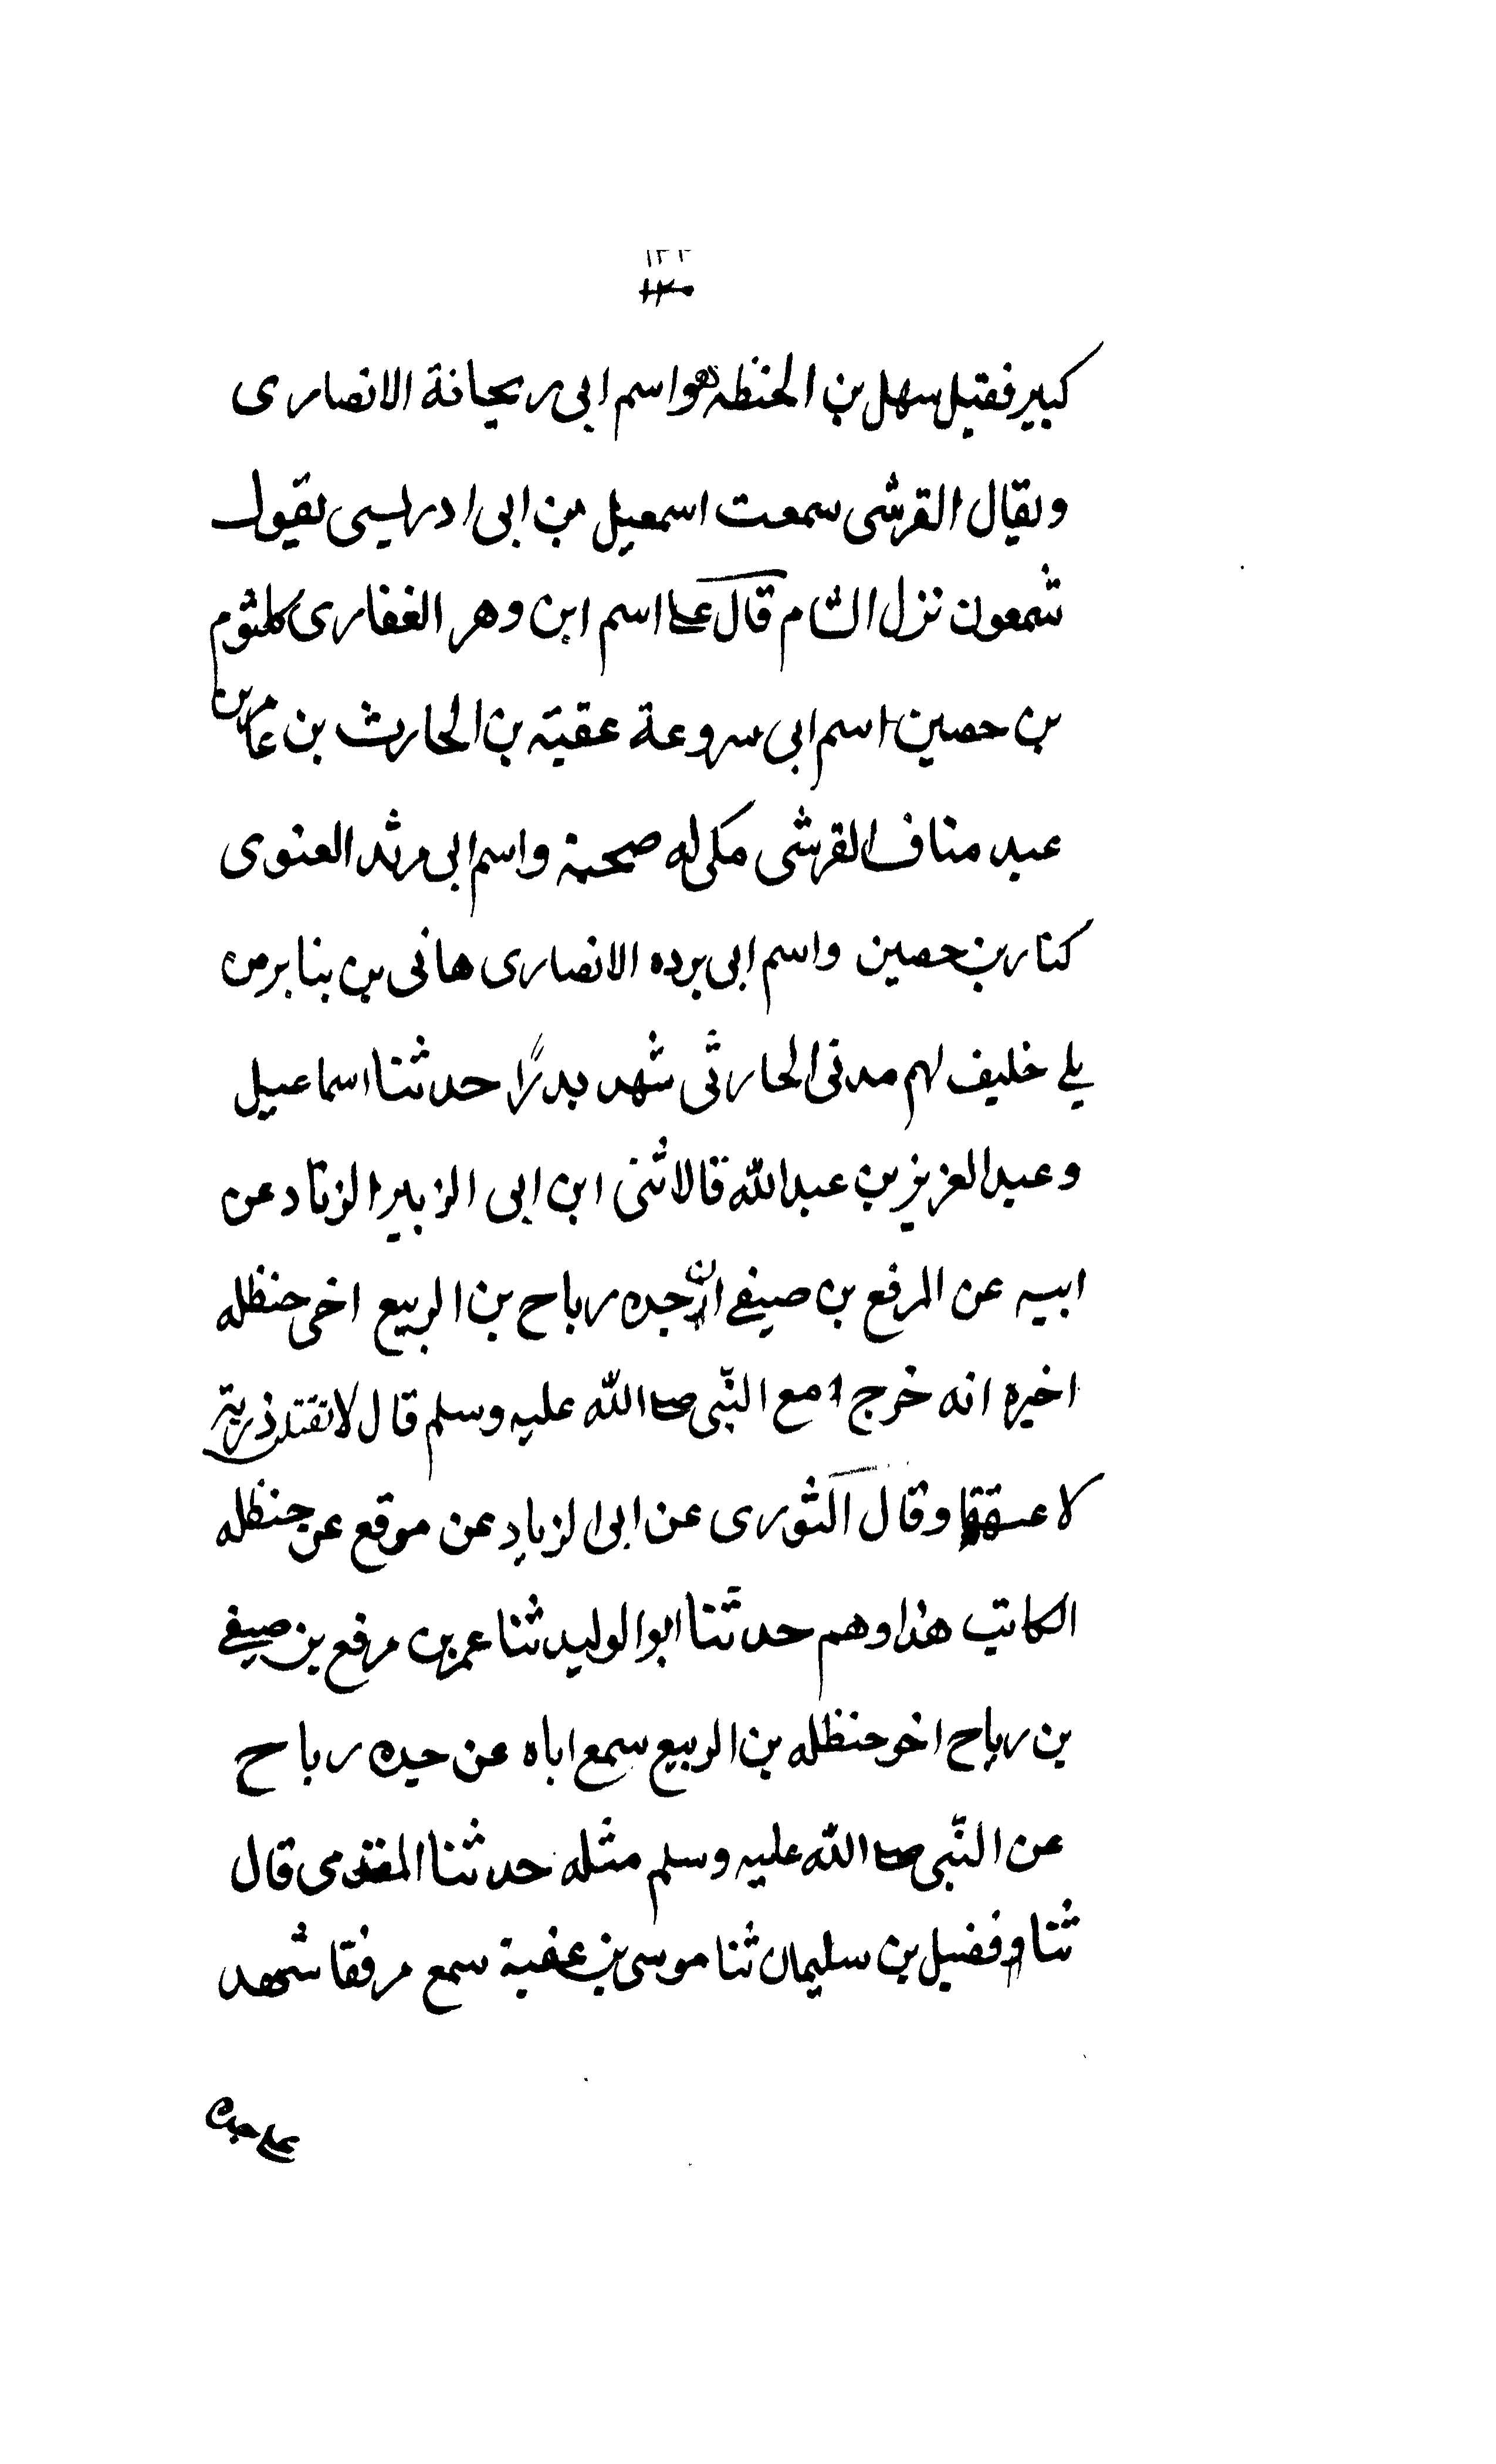 كبير فقتيل سهل بن الحنظه هو اسم ابى ريحانة الانصارى
ويقال القرشى سمعت اسمعيل بن ابى ادريسى يقول
شمعون نزل الشام قال على اسم ابن وهر الغفارى كلثوم
بن حصين اسم ابى سروعة عقبة بن الحارث بن عامر بن
عبد مناف القرشى مكى له صحبة واسم ابى مرثد العنوى
كناربن حصين واسم ابى برده الانصارى هانى بن بنابر من
يلے خليف لهم مدنى الحارثى شهد بدرًا حدثنا اسماعيل
وعبد العزيز بن عبد الله قالا ثنى ابن ابى الزبير الزناد عن
ابيه عن المرفع بن صيفے ان جده رباح بن الربيع اخى حنظله
اخبره انه خرج مع النّبى صلى الله عليه وسلم قال لا تقتلن ذرية
لا وقال الثورى عن ابى الزياد عن موقع عن حنظله
الكاتب هذا وهم حدثنا ابو الوليد ثنا عمر بن مرفع بن صيفے
بن رباح اخو حنظله بن الربيع سمع اباه عن جده رباح
عن النّبى صلى الله عليه وسلم مثله حدثنا المقدمى قال
ثنا فضيل بن سليمان ثنا موسى بن عقبة سمع مرفقا شهد
على جده